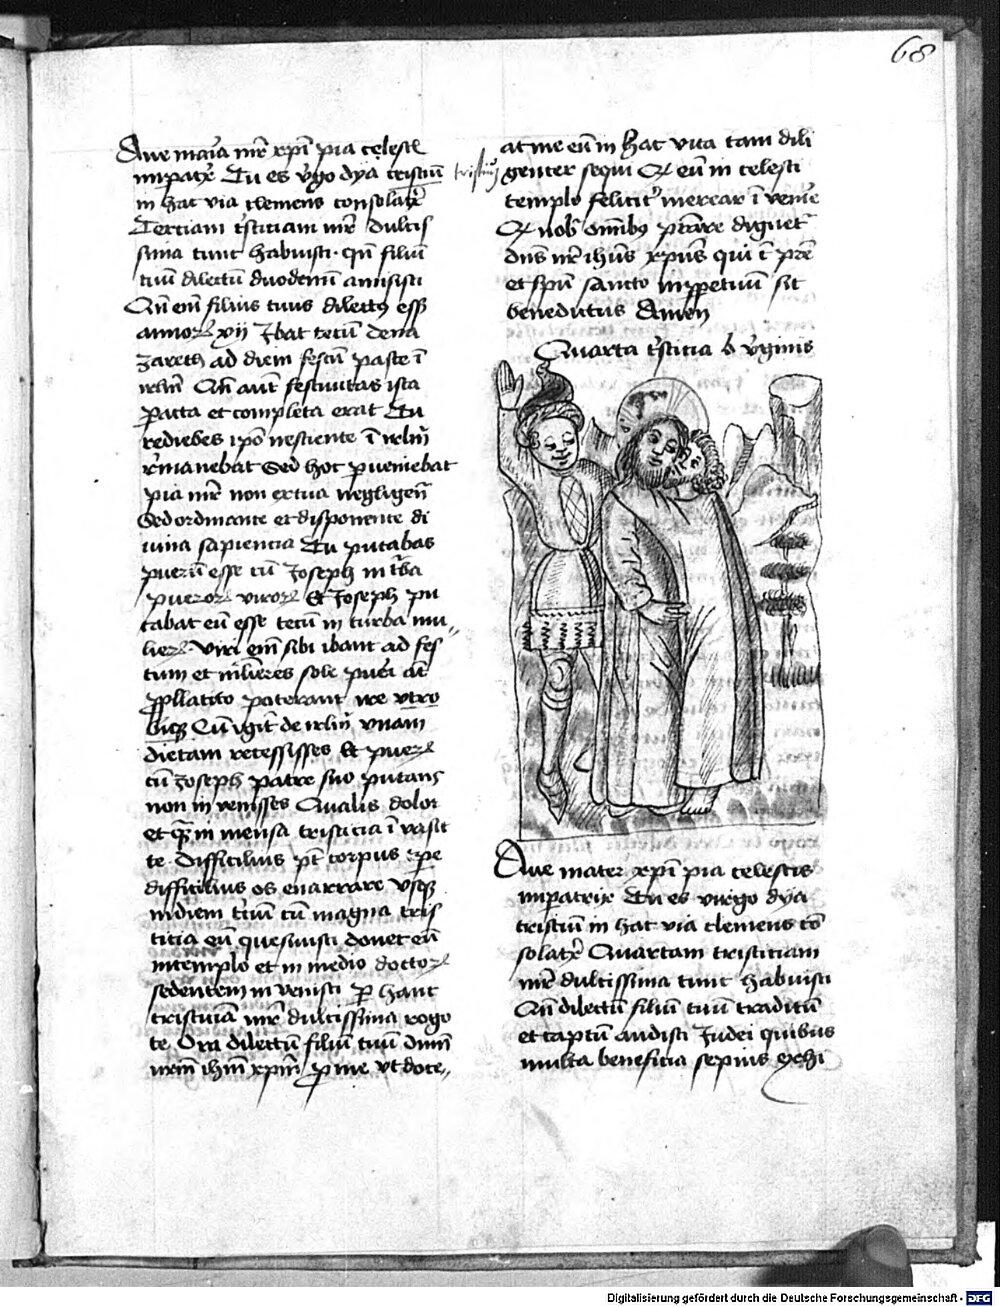 68
Aue maria mr̄e xp̄i pia celest̄
impatx̄ Tu es v̄go dya tristiū
in hac via clemens consolatx̄
Terciam t̄sticiam mr̄e dulcis
sima tunc habuisti · qn̄ filiū
tuū dilectū duodenū amisisti
Qn̄ em̄ filius tuus dilectꝯ ess̄
annoꝝ xij Jbat tecū dena
zareth ad diem festū pasce ī
irl̄m Qn̄ aut̄ festiuitas ista
ꝑacta et completa erat Tu
rediebes ip̄o nesciente ī irl̄m
r̄manebat Sed hoc ꝓueniebat
pia mr̄e non extua negligen̄
Sed ordinante et disponente di
uina sapiencia Tu putabas
puerū esse cū Joseph in t̄ba
pueroꝝ viroꝝ Et Joseph pu
tabat eū esse tecū in turba mu〃
lieꝝ · Viri em̄ sibi ibant ad fes
tum et ml̄ieres sole pueri aūt
ꝓpllacito poterant ire vtro
bicꝫ Cū igit̄ de irl̄m vnam
dietam recessisses Et pueꝝ
cū Joseph patre suo putans
non in venisses Qualis dolor
et qm̄ in mensa tristicia ī vasit
te · Difficilius pt̄ corpus · ꝑe
difficilius os enarrare Vsqꝫ
indiem t̄ciū cū magna tris
ticia eū quesiuisti donec eū
intemplo et in medio doctoꝝ
sedentem in venisti ꝑ hanc
tristiciā mr̄e dulcissima rogo
te Ora dilectū filiū tuū dnm̄
nrm̄ ihm̄ xpm̄ ꝓ me vt doce〃
tristiū
at me eū in hac vita tam dili
genter sequi Et eū in celesti
templo felicit̄ merear ī venire
Et nob̄ omībꝯ p̄stare dignet̄
dn̄s nr̄ ihūs xpūs qui c̄ pr̄e
et spū sancto inꝑpetuū sit
benedictus Amen
Quarta t̄sticia b̄ v̄ginis
Aue mater xp̄i pia celestis
imperatrix Tu es virgo dya
tristiū in hac via clemens cō
solatx̄ Quartam tristiciam
mr̄e dulcissima tunc habuisti
Qn̄ dilectū filiū tuū traditū
et captū audisti Judei quibus
multa beneficia sepius exhi
Digitalisierung gefördert durch die Deutsche Forschungsgemeinschaft - DFG